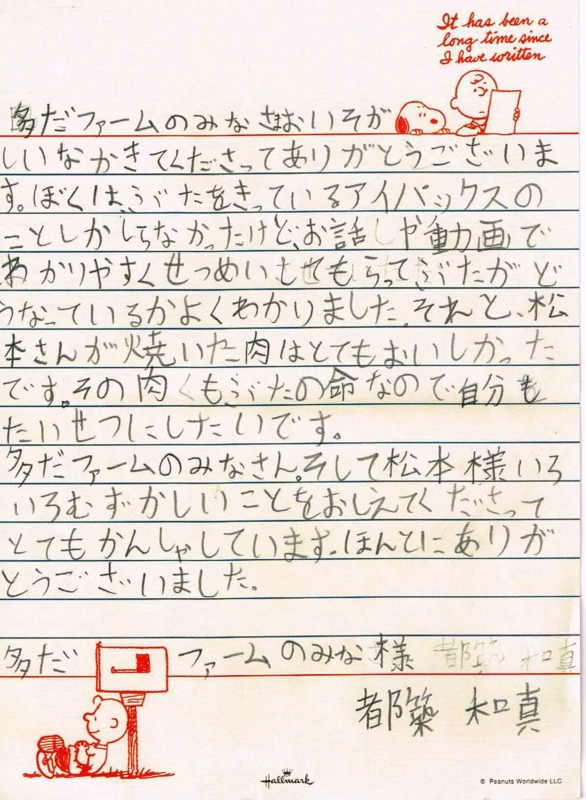 It has been a
long time since
I have written
多だファームのみなさまおいそが
しいなかきてくださってありがとうございま
す。ぼくは、ぶたをきっているアイバックスの
ことしかしらなかったけど、お話しや動画で
わかりやすくせつめいしてもらってぶたがど
うなっているかよくわかりました。それと、松
本さんが焼いた肉はとてもおいしかった
です。その肉くもぶたの命なので自分も
たいせつにしたいです。
多だファームのみなさん。そして松本様いろ
いろむずかしいことをおしえてくださって
とてもかんしゃしています。ほんとにありが
とうございました。
多だファームのみな様
都築 和真
Hallmark
© Peanuts Worldwide LLC